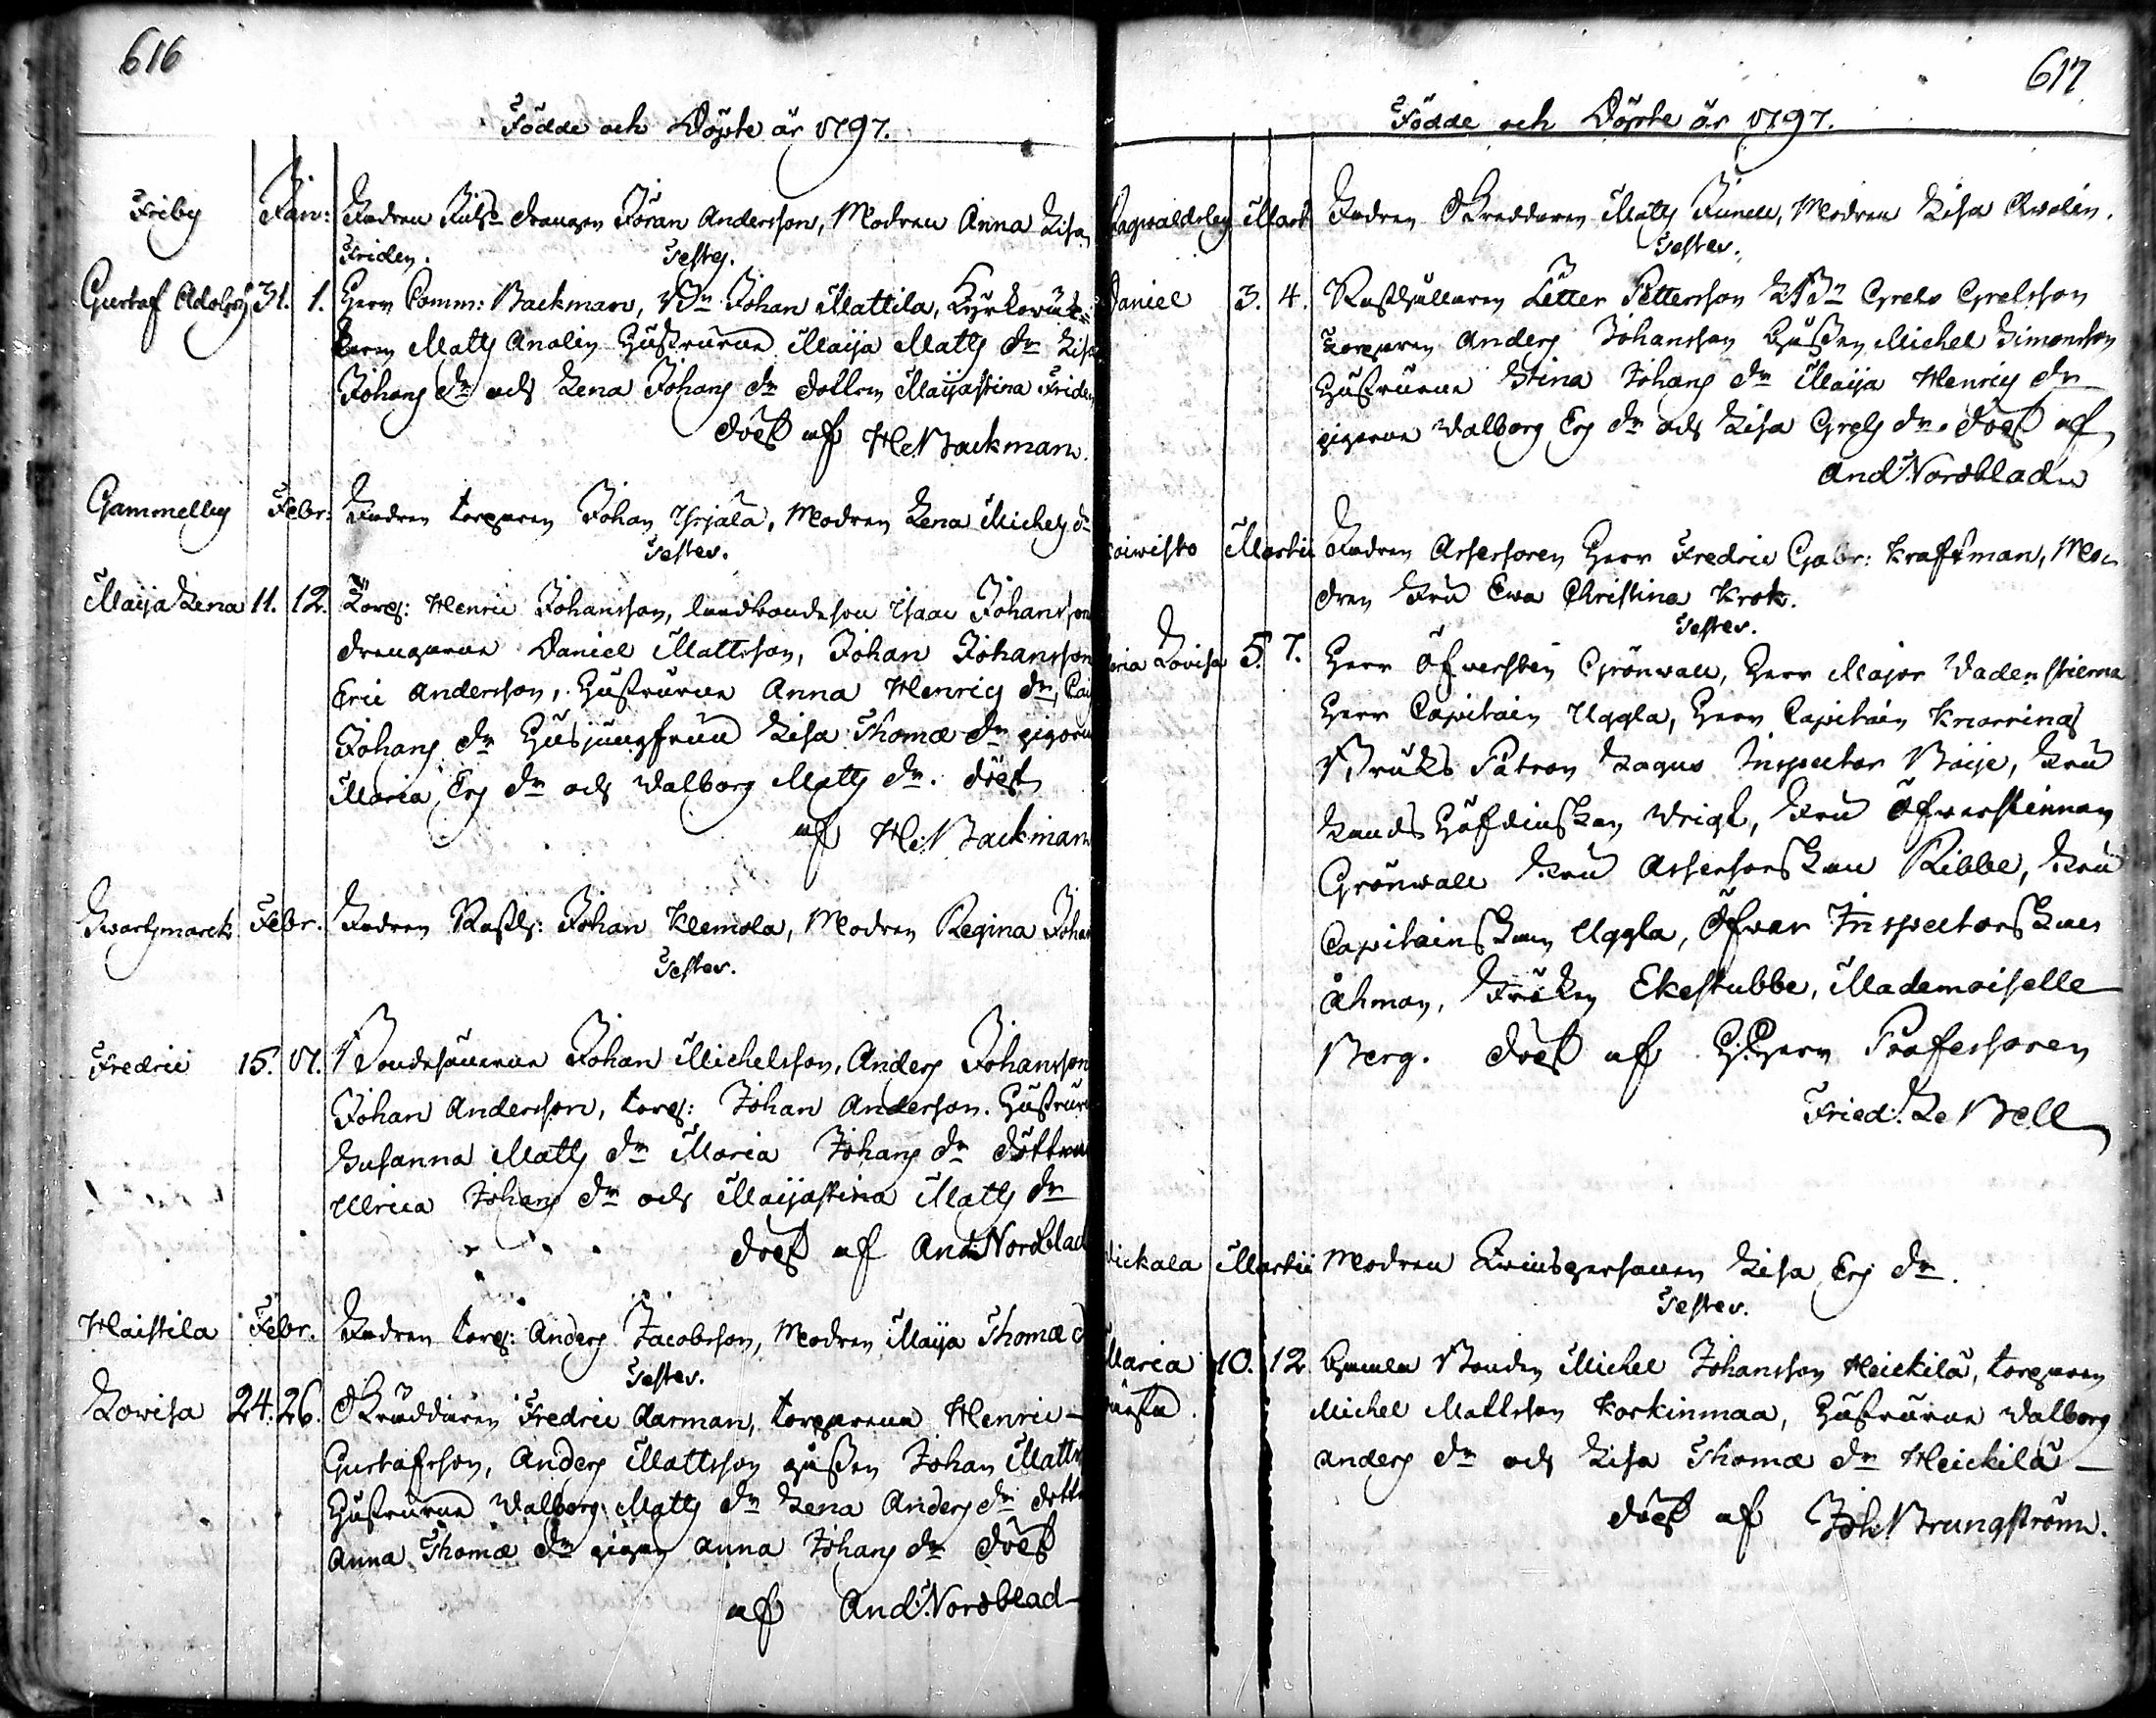 616
Födde och Döpte år 1797.
Friby Jan: Fadren drangen Jöran Andersson, Modren Anna Lisa
Friden. Testes.
Gustaf Adolph 31. 1. Herr Comm: Backman, Bn Johan Mattila,
Matts Analin Hustrurne Maija Matts dr Lisa
Johans dr och Lena Johans dr dottren Maijastina Friden
döpt af H. Backman.
Gammelby Febr: Fadren torparen Johan Yrjälä, Modren Lena Michels dr
Testes.
Maija Lena 11. 12. Torp: Henric Johansson, landbondeson Isaac Johansson
drengarne Daniel Mattsson, Johan Johansson
Eric Andersson, Hustrurne Anna Henrics dr,
Johans dr Husjungfrun Lisa Thomæ dr pigorne
Maria Ers dr och Walborg Matts dr. döpt
af H: Backman
Swartsmarck Febr. Fadren Rusth: Johan Klemola, Modren Regina Johan
Testes.
Fredric 15. 17. Bondesönerne Johan Michelsson, Anders Johansson
Johan Andersson, torp: Johan Anderson. Hustrur
Susanna Matts dr Maria Johans dr döttrar
Ulrica Johans dr och Maijastina Matts dr
döpt af And: Nordblad
Haistila Febr. Fadren torp: Anders Jacobsson, Modren Maija Thomæ d
Testes.
Lovisa 24. 26. Skräddaren Fredric Aarman, torparena Henric
Gustafsson, Anders Mattsson gossen Johan Matts
Hustrurne Walborg Matts dr Lena Anders dr dott
Anna Thomæ dr pigan Anna Johans dr döpt
af And: Nordblad
617
Födde och Döpte år 1797.
Ragwaldsby Mart Fadren Skreddaren Matts Funck, Modren Lisa Awelin.
Testes.
Daniel 3. 4. Rusthållaren Petter Pettersson Grels Grelsson
torparen Anders Johansson Gossen Michel Simonsson
Hustrurne Stina Johans dr Maija Henrics dr
pigorne Walborg Ers dr och Lisa Grels dr. döpt af
And: Nordblad
oiwisto Martii Fadren Assessoren Herr Fredric Gabr: Kraftman, Mo=
dren Fru Ewa Christina Krok.
Testes.
aria Lovisa 5. 7. Herr Öfwersten Grönwall, Herr Major Wadenstierna
Herr Capitain Uggla, Herr Capitain Knorring
Bruks Patron Lagus Inspector Boije, Fru
Lands Höfdinskan Wright, Fru Öfwerstinnan
Grönwall Fru Assessorskan Ribbe, Fru
Capitainskan Uggla, Öfwer Inspectorskan
Åhman, Fröken Ekestubbe, Mademoiselle
Berg. döpt af H:Herr Professoren
Fried: Le Bell
ickala Martii Modren Kvinspersonen Lisa Ers dr.
Testes.
Maria 10. 12. Gamla Bonden Michel Johansson Heickilä, torparen
Michel Mattsson Korkinmaa, Hustrurne Walborg
Anders dr och Lisa Thomæ dr Heickilä
döpt af Joh: Brungström.